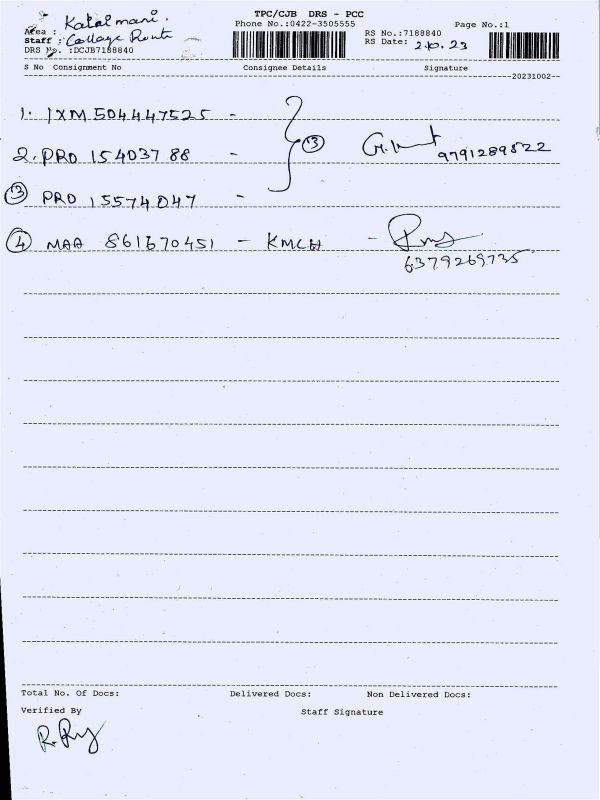 TPC/CJB DRS - PCC
Kalaimani.
Area :
Phone No.:0422-3505555
Page No.:1
Staff : College Route
RS No.:7188840
DRS No. :DCJB7188840
RS Date: 2.10.23
S No Consignment No Consignee Details Signature
--20231002--
1. IXM 504447525 -
2. PRO 15403788 - 3 9791289522
3 PRO 15574047 -
4 MAA 861670451 - KMCH -
6379269735
Total No. Of Docs: Delivered Docs: Non Delivered Docs:
Verified By Staff Signature